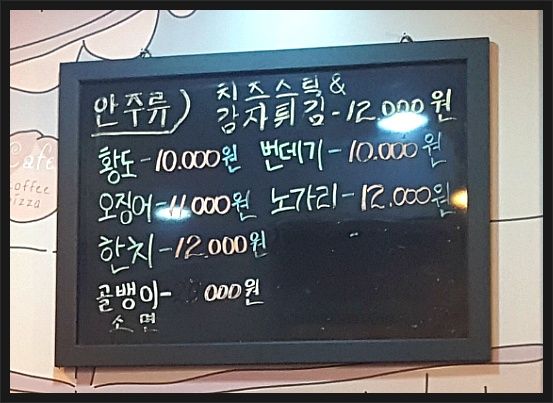 안주류) 치즈스틱 &
감자튀김 - 12.000원
황도 - 10.000원 번데기 - 10.000원
오징어 - 11.000원 노가리 - 12.000원
한치 - 12.000원
골뱅이 - 000원
소면
Cafe
coffee
pizza